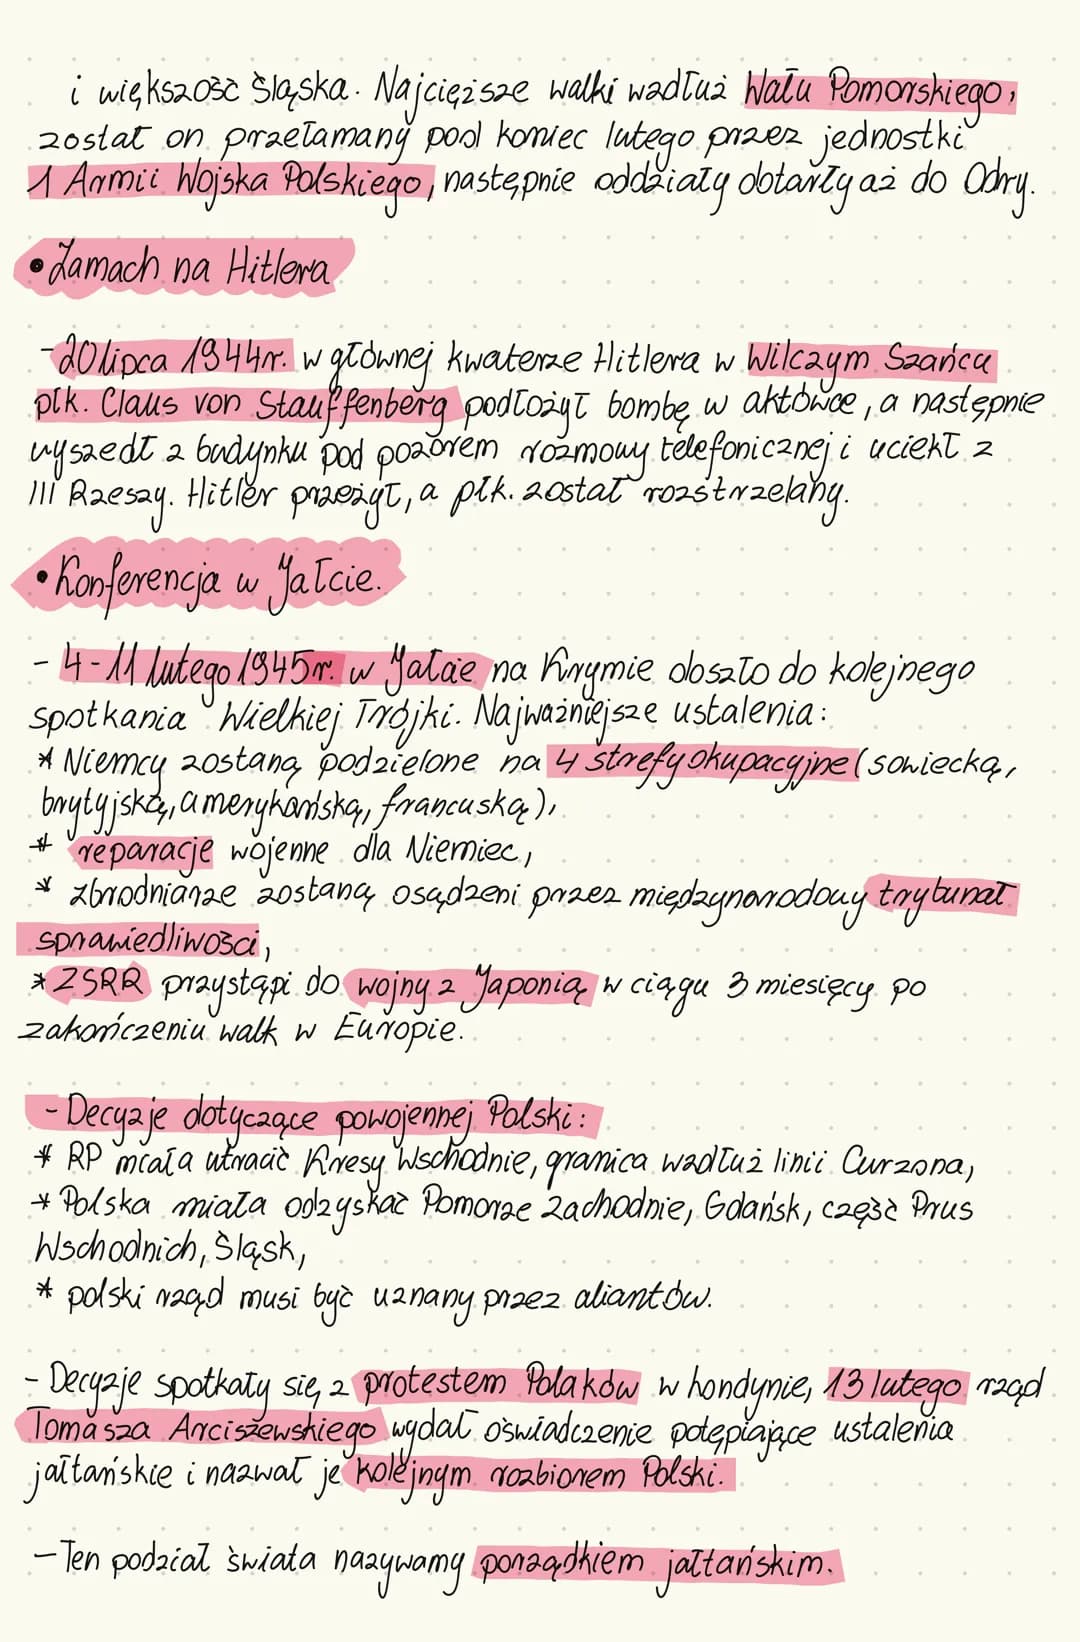 i większość Śląska. Najcięższe walki wzdłuż Wału Pomorskiego,
został on przełamany pod koniec lutego przez jednostki
1 Armii Wojska Polskiego, następnie oddziały dotarły aż do Odry.
• Zamach na Hitlera
- 20 lipca 1944r. w głównej kwaterze Hitlera w Wilczym Szańcu
płk. Claus von Stauffenberg podłożył bombę w aktówce, a następnie
wyszedł z budynku pod pozorem rozmowy telefonicznej i uciekł z
III Rzeszy. Hitler przeżył, a płk. został rozstrzelany.
• Konferencja w Jałcie.
- 4-11 lutego 1945r. w Jałcie na Krymie doszło do kolejnego
spotkania Wielkiej Trójki. Najważniejsze ustalenia:
* Niemcy zostaną podzielone na 4 strefy okupacyjne (sowiecką,
brytyjską, amerykańską, francuską),
* reparacje wojenne dla Niemiec,
* zbrodniarze zostaną osądzeni przez międzynarodowy trybunał
sprawiedliwości,
* ZSRR przystąpi do wojny z Japonią w ciągu 3 miesięcy po
zakończeniu walk w Europie.
- Decyzje dotyczące powojennej Polski:
* RP miała utracić Kresy Wschodnie, granica wzdłuż linii Curzona,
* Polska miała odzyskać Pomorze Zachodnie, Gdańsk, część Prus
Wschodnich, Śląsk,
* polski rząd musi być uznany przez aliantów.
- Decyzje spotkały się z protestem Polaków w hondynie, 13 lutego rząd
Tomasza Arciszewskiego wydał oświadczenie potępiające ustalenia
jałtańskie i nazwał je kolejnym rozbiorem Polski.
- Ten podział świata nazywamy porządkiem jałtańskim.